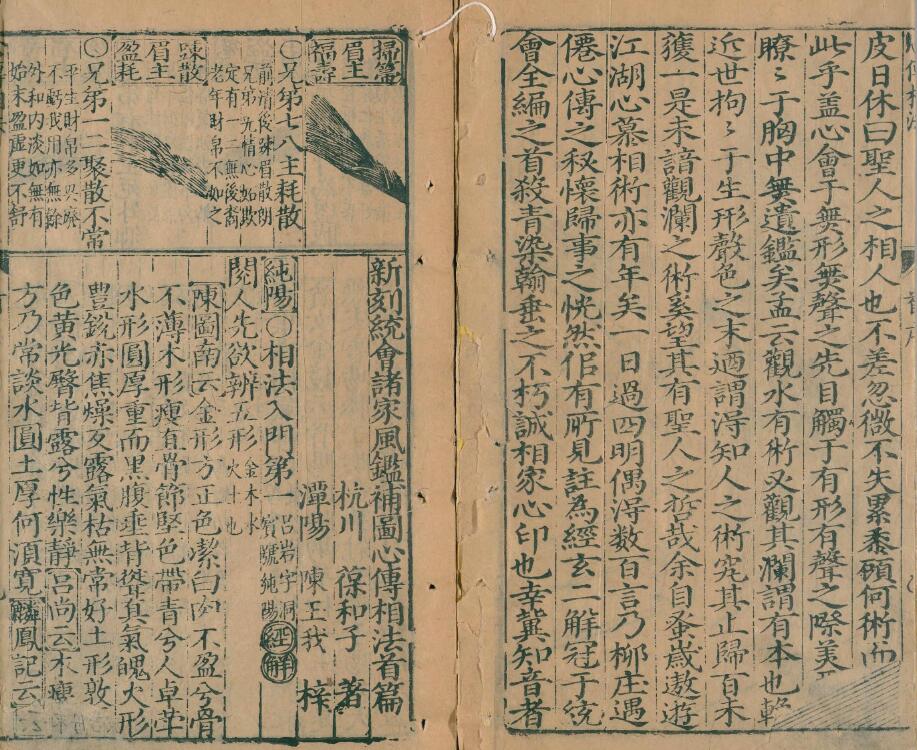 皮日休曰聖人之相人也不差忽微不失累黍顧何術而
此乎盖心會于無形無聲之先目觸于有形有聲之際美
瞭〻于胸中無遺鑑矣孟云觀水有術必觀其瀾謂有本也
近世拘〻于生形聲色之末迺謂淂知人之術究其止歸百未
獲一是未諳觀瀾之術奚望其有聖人之哲哉余自蚤歲遨遊
江湖心慕相術亦有年矣一日過四明偶淂数百言乃柳庄遇
僊心傳之秘懷歸事之恍然佀有所見註為經玄二解冠于統
會全編之首殺青染翰垂之不朽誠相家心印也幸冀知音者
掃箒
眉主
福壽
〇兄弟七八主耗散
前清後踈眉散朗
兄弟先情心始欺
定有一二無後裔
老年財帛不如之
踈散
眉主
盈耗
〇兄弟一二聚散不常
平生財帛多興廢
不虧我用亦無餘
外和内淡如無有
始末盈虛更不舒
新刻統會諸家風鑑補圖心傳相法首篇
杭川 葆和子 著
潭陽 陳玉我 梓
純陽〇相法入門第一 呂岩字洞賓號純陽 經解
閱人先欲辨五形 金木水火土也
陳圖南云金形方正色潔白肉不盈兮骨
不薄木形瘦直骨節堅色帶青兮人卓犖
水形圓厚重而黑腹垂背聳真氣魄火形
豐銳赤焦燥反露氣枯無常好土形敦
色黄光臀背露兮性樂靜呂尚云木瘦
方乃常談水圓土厚何湏寛麟鳳記云